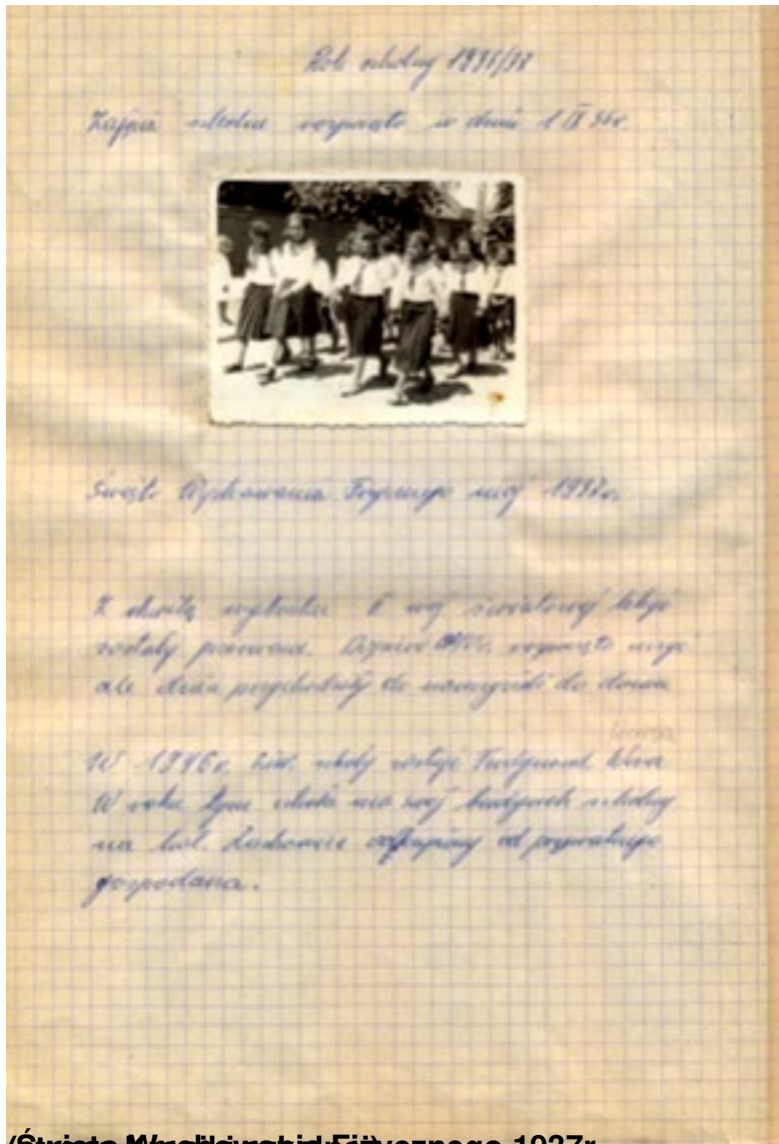 Rok szkolny 1936/37
Zajęcia szkolne rozpoczęto w dniu 1 IX 36r.
Święto Wychowania Fizycznego maj 1937r.
Z chwilą wybuchu II woj światowej lekcje
zostały przerwane.
ale dzieci przychodziły do nauczycieli do domu
W 1946r. kier. szkoły zostaje
W roku tym szkoła ma swój budynek szkolny
na kol. odkupiony od prywatnego
gospodarza.
Fizycznego 1937r